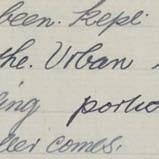 been. kept
the. Urban
ing portio
ler comes.